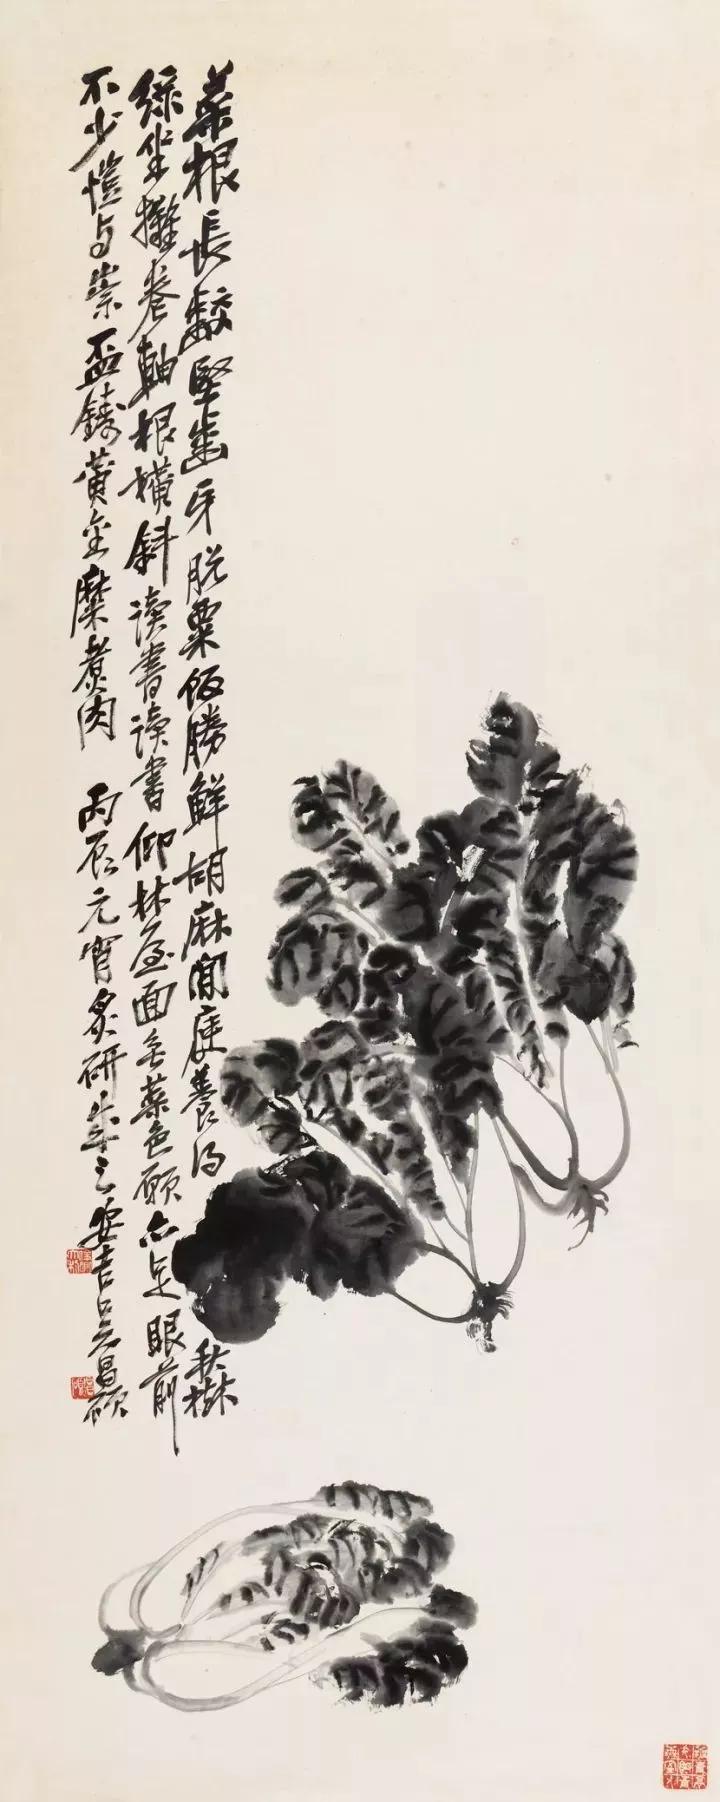 菜根長齩堅齒牙脫粟飯勝鮮胡麻閒庭養得秋樹
綠坐擁卷軸根橫斜讀書讀書仰林屋面無菜色願亦足眼前
不少愷與崇盃鑄黃金糜煮肉　丙辰元宵炙研成之安吉吳昌碩